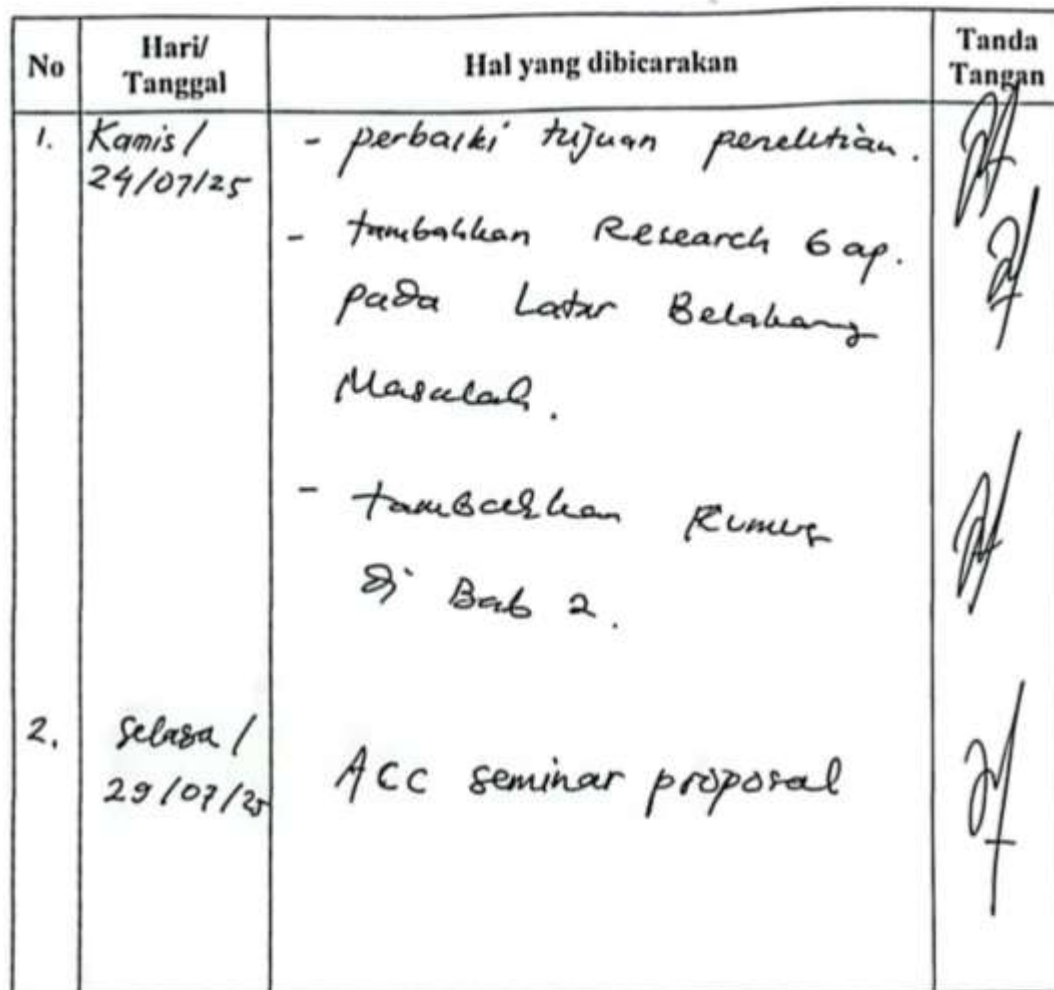 No Hari/ Tanggal Hal yang dibicarakan Tanda Tangan
1. Kamis / - perbaiki tujuan penelitian.
24/07/25
- tambahkan Research Gap.
pada Latar Belakang
Masalah.
- tambahkan Rumus
di Bab 2.
2. Selasa / ACC seminar proposal
29/07/25